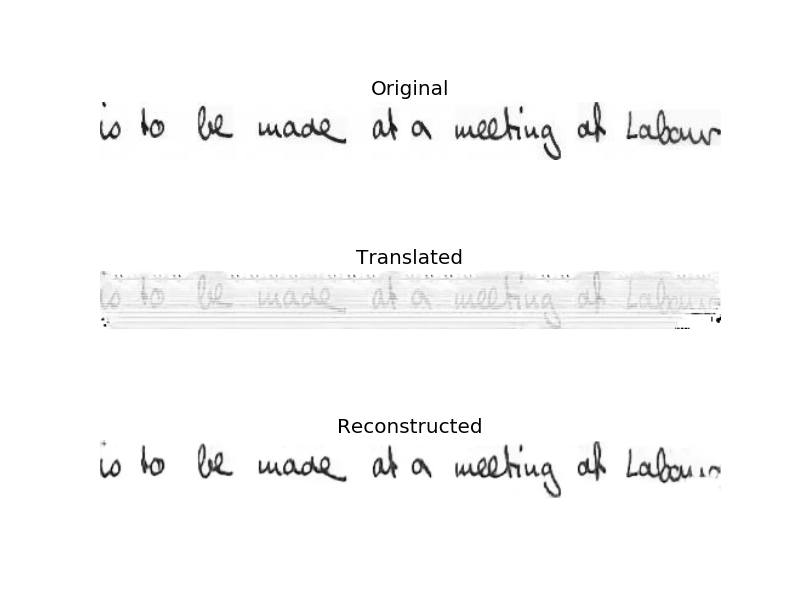 Original
is to be made at a meeting at Labour
Translated
is to be made at a meeting at Labour
Reconstructed
is to be made at a meeting at Labour